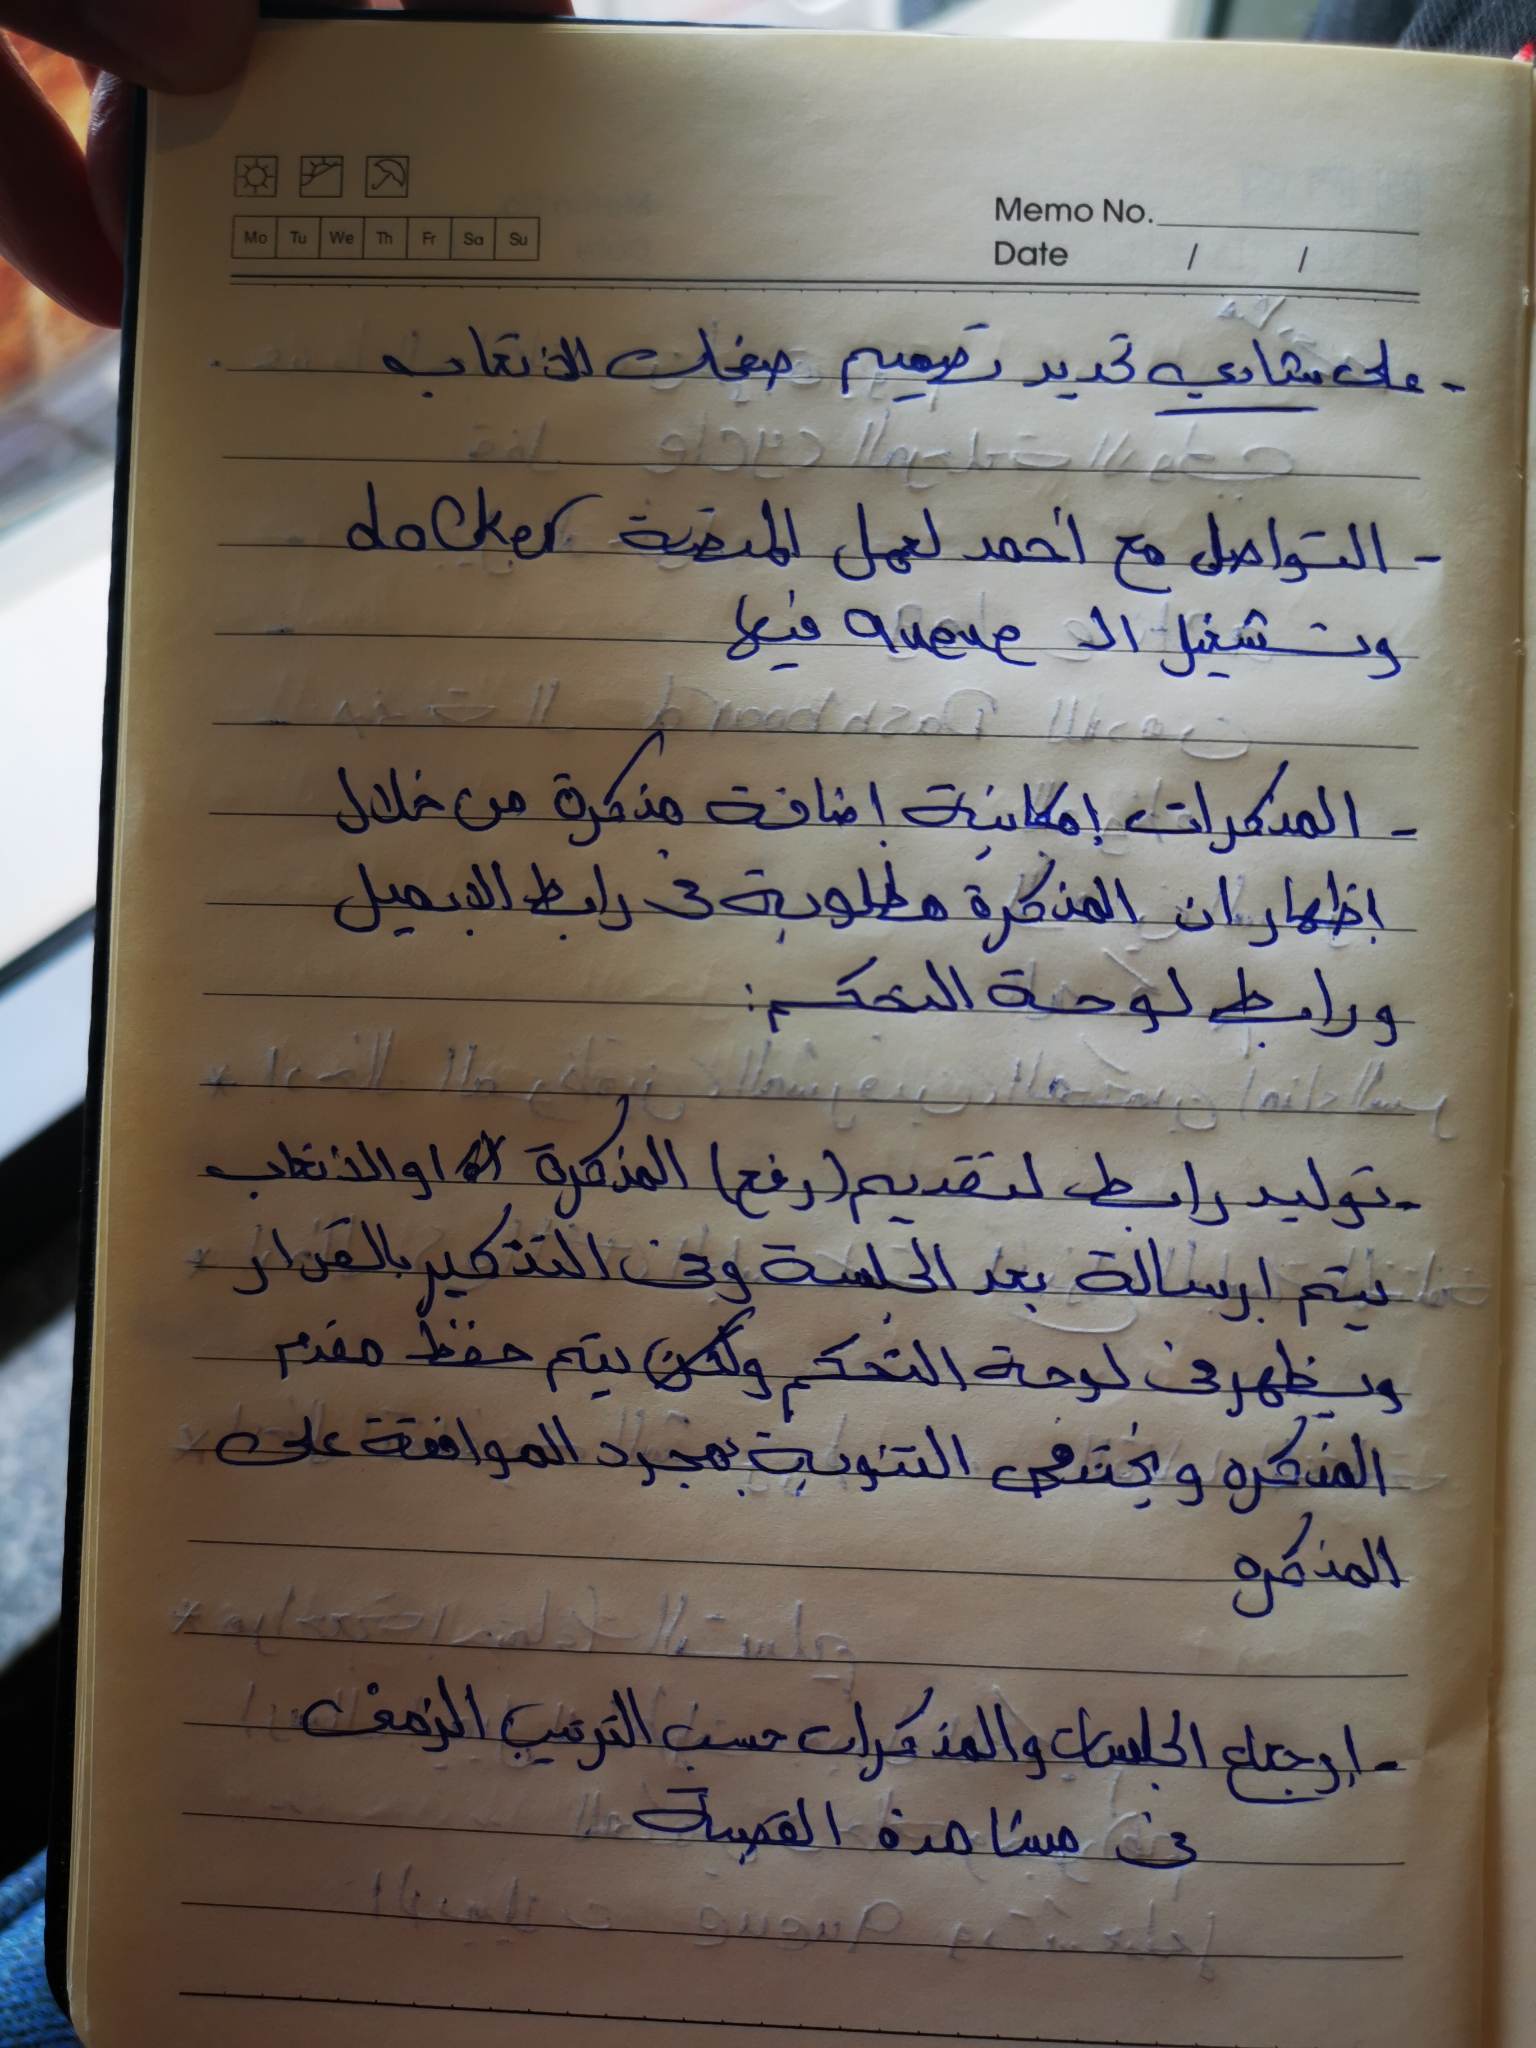 Memo No.
Mo Tu We Th Fr Sa Su
Date / /
- على شادي تحديد تصميم صفحات الانتعاب
- التواصل مع أحمد لعمل المنصة docker
وتشغيل الـ queue فيها
- المذكرات إمكانية إضافة مذكرة من خلال
إظهار ان المذكرة مطلوبة في رابط الايميل
ورابط لوحة التحكم:
- توليد رابط لتقديم (رفع) المذكرة او الانتعاب
يتم ارسالة بعد الجلسة وفي التذكير بالقرار
ويظهر في لوحة التحكم ولكن يتم حفظ مقدم
المذكره ويختفي التنويه بمجرد الموافقة على
المذكره
- الجلسات والمذكرات حسب الترتيب الزمني
في مشاهدة القضية